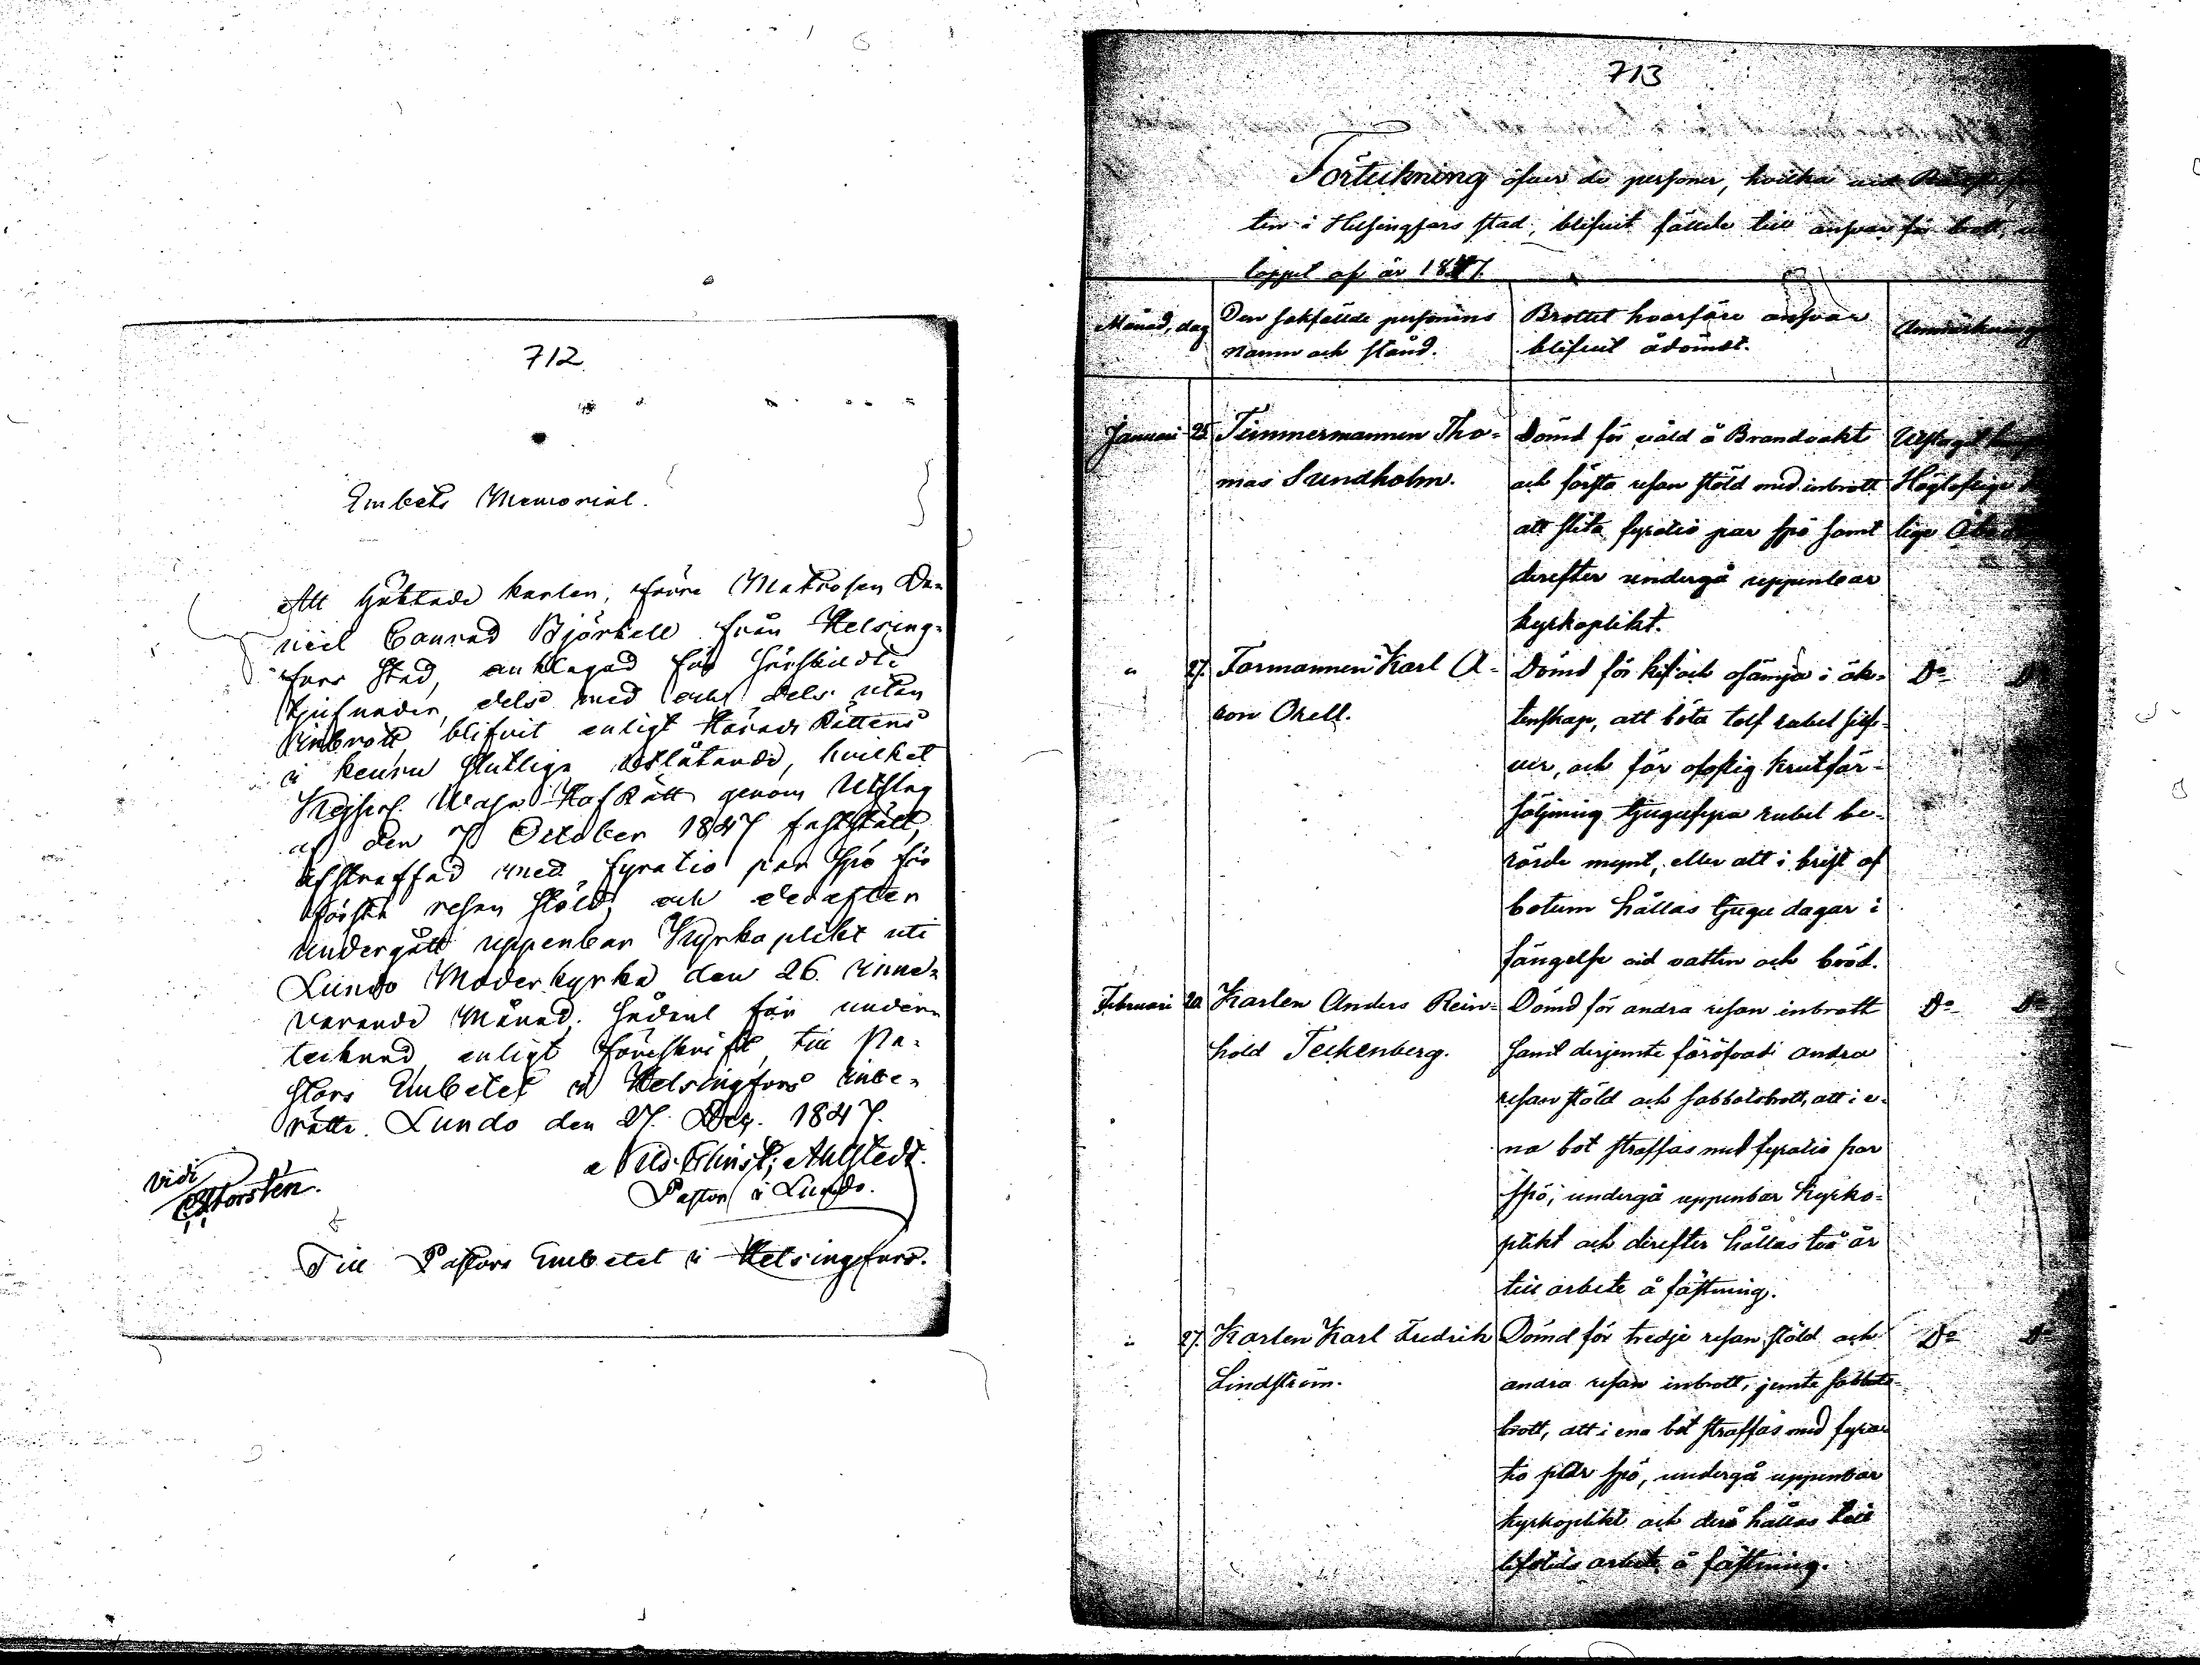 712
Embets Memorial.
Att häktade karlen, förre Matrosen Da-
niel Conrad Björkell från Helsing-
fors Stad, anklagad för särskildte
tjufnader, dels med och dels utan
inbrott, blifvit enligt Härads Rättens
i  slutliga utlåtande, hvilket
Kejserl. Wasa HofRätt genom Utslag
af den 7 October 1847 fastställt,
afstraffad med fyratio par spö för
första resan stöld, och derefter
undergått uppenbar Kyrkoplikt uti
Lundo Moderkyrka den 26. inne-
varande Månad. Sådant får under-
tecknad, enligt föreskrift, till Pa-
stors Embetet i Helsingfors inbe-
rätta. Lundo den 27. Dec. 1847.
Nils Ahlstedt.
Pastor i Lundo.
vidi
Till Pastors Embetet i Helsingfors.
713
Förteckning öfver de personer, hvilka vid
ten i Helsingfors stad, blifvit fällde till ansvar för brott,
loppet af år 1847.
Månad, dag
Den sakfällde personens
namn och stånd.
Brottet hvarföre ansvar
blifvit ådömdt.
Anmärkning
Januari 25 Timmermannen Tho-
mas Sundholm.
Dömd för våld å Brandvakt
och första resan stöld med inbrott
att slita fyratio par spö samt
derefter undergå uppenbar
kyrkoplikt.
Utslaget
Höglofliga
lige
" 27. Formannen Karl A-
ron Orell.
Dömd för kif och osämja i äk-
tenskap, att böta tolf rubel silf-
ver, och för olaflig krutför-
säljning tjugufyra rubel be-
rörde mynt, eller att i brist af
botum hållas tjugu dagar i
fängelse vid vatten och bröd.
Do Do
Februari 20 Karlen Anders Rein-
hold Teckenberg.
Dömd för andra resan inbrott
samt derjemte föröfvad andra
resan stöld och sabbatsbrott, att i e-
na bot straffas med fyratio par
spö, undergå uppenbar kyrko-
plikt och derefter hållas två år
till arbete å fästning.
Do Do
" 27. Karlen Karl Fredrik
Lindström.
Dömd för tredje resan stöld och
andra resan inbrott, jemte sabbats-
brott, att i ena bot straffas med fyra-
tio par spö, undergå uppenbar
kyrkoplikt och derå hållas till
lifstids arbete å fästning.
Do Do